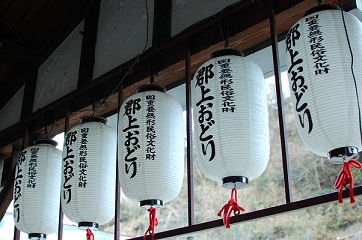 国重要無形民俗文化財
郡上おどり
国重要無形民俗文化財
郡上おどり
国重要無形民俗文化財
郡上おどり
国重要無形民俗文化財
郡上おどり
国重要無形民俗文化財
郡上おどり